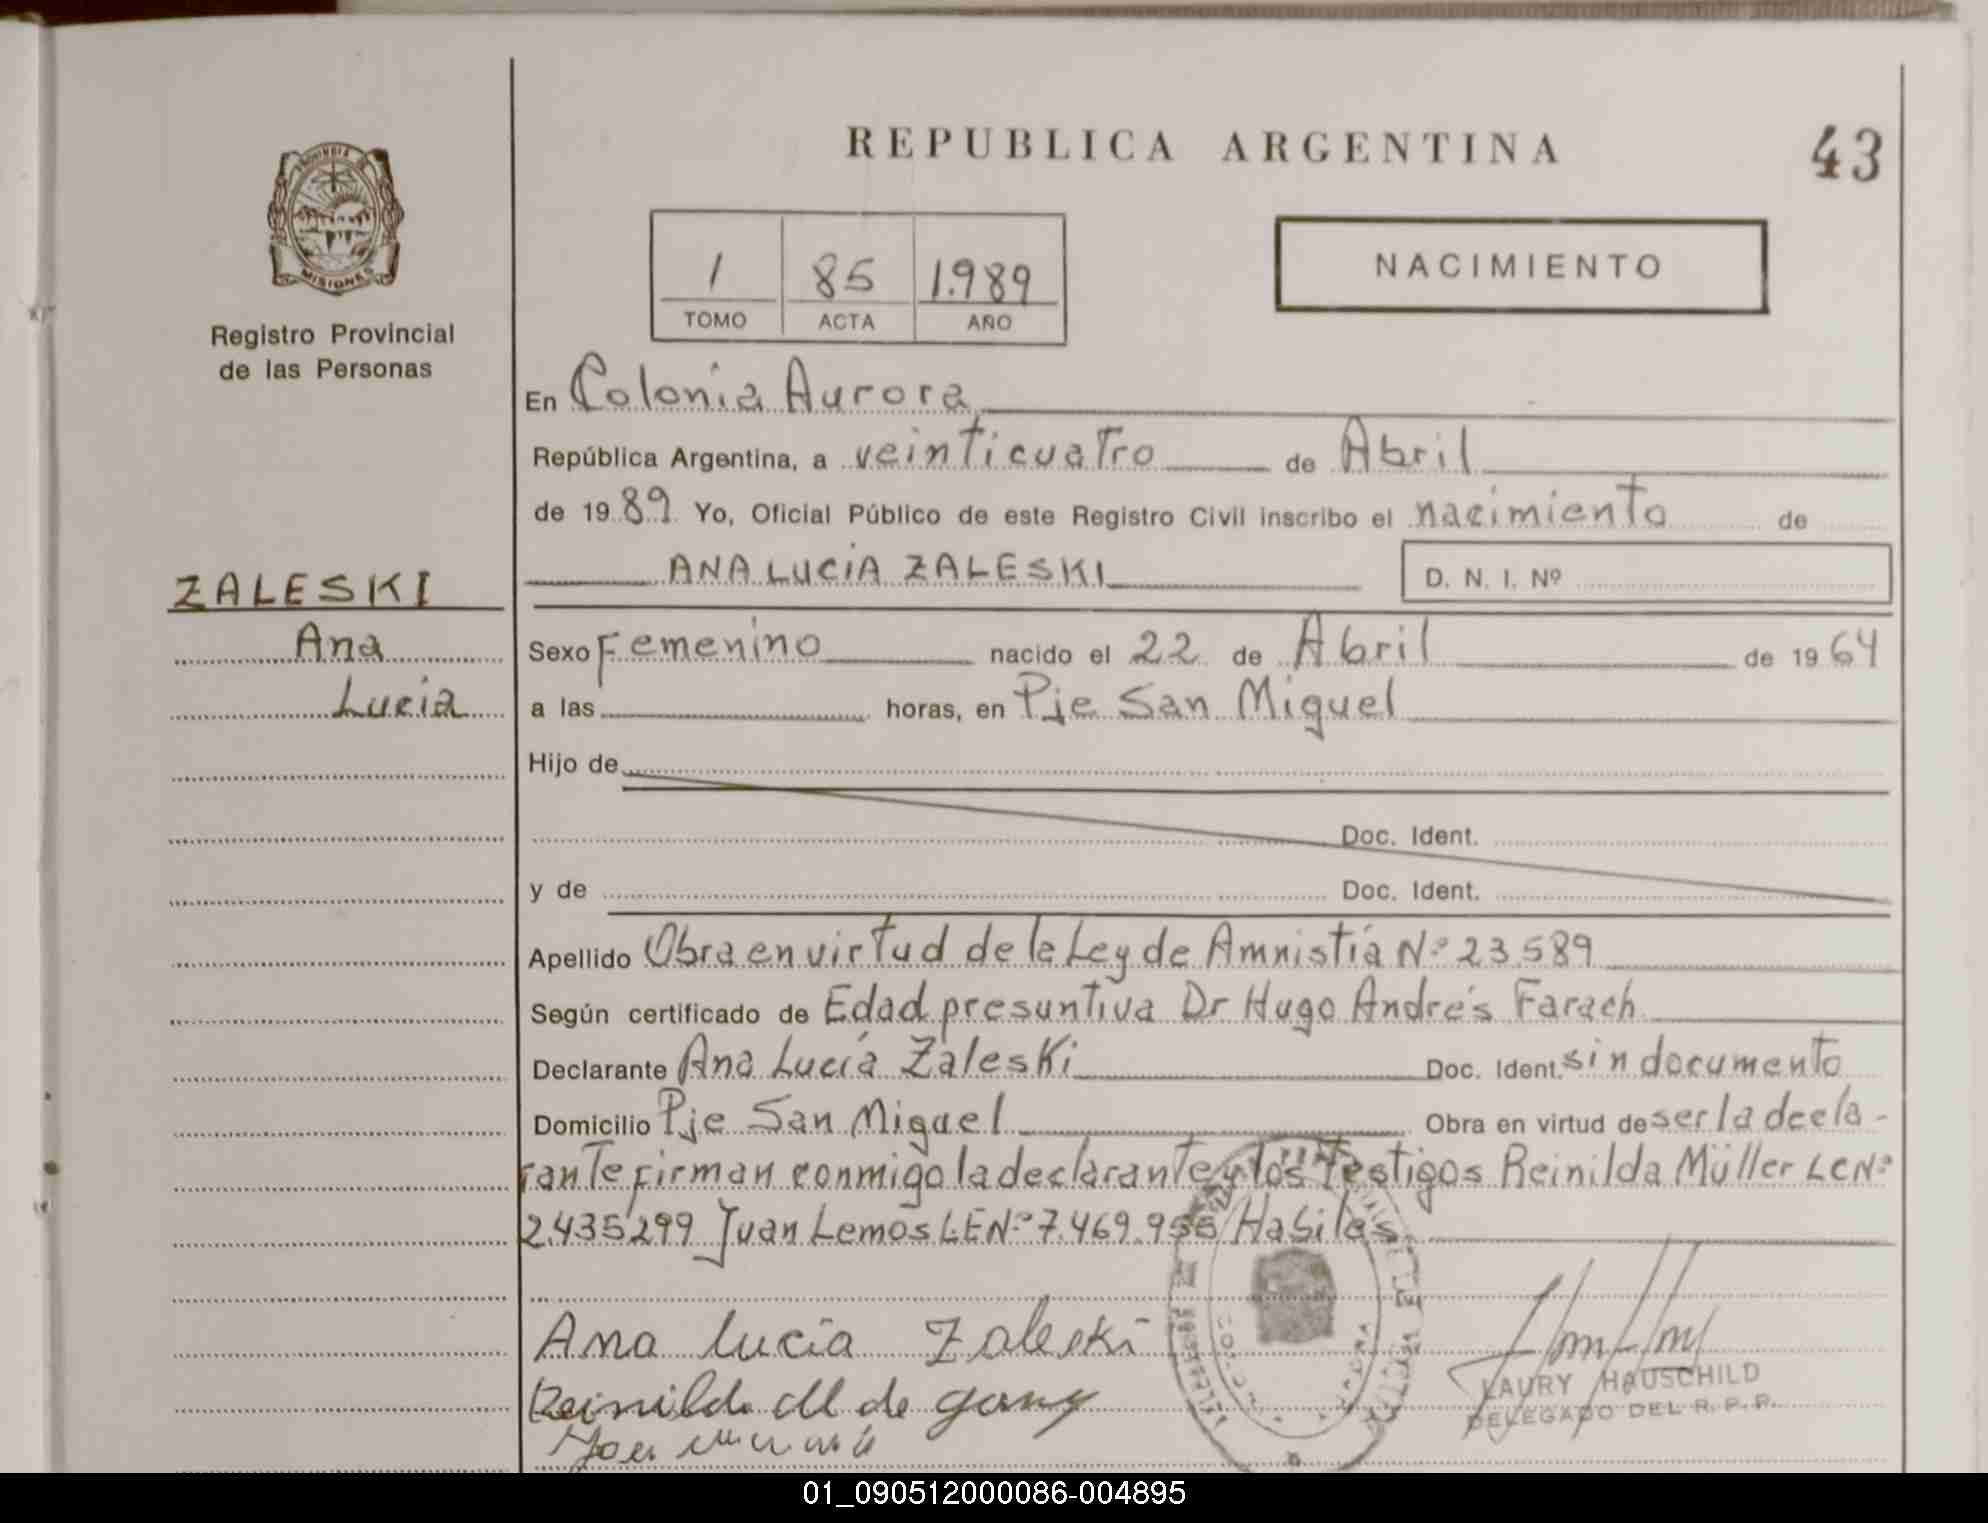 REPUBLICA ARGENTINA
43
PROVINCIA DE
MISIONES
Registro Provincial
de las Personas
1 85 1.989
TOMO ACTA AÑO
NACIMIENTO
En Colonia Aurora
República Argentina, a veinticuatro de Abril
de 1989 Yo, Oficial Público de este Registro Civil inscribo el nacimiento de
ANA LUCIA ZALESKI D. N. I. Nº
ZALESKI
Ana
Lucia
Sexo Femenino nacido el 22 de Abril de 1964
a las horas, en Pje San Miguel
Hijo de
Doc. Ident.
y de Doc. Ident.
Apellido Obra en virtud de la Ley de Amnistía Nº 23.589
Según certificado de Edad presuntiva Dr Hugo Andrés Farach
Declarante Ana Lucía Zaleski Doc. Ident. sin documento
Domicilio Pje San Miguel Obra en virtud de ser la decla-
rante firman conmigo la declarante y los Testigos Reinilda Müller LCNº
2.435299 Juan Lemos LENº 7.469.955 Habiles
Ana Lucia Zaleski
Reinilda M de
LAURY HAUSCHILD
DELEGADO DEL R. P. P.
01_090512000086-004895